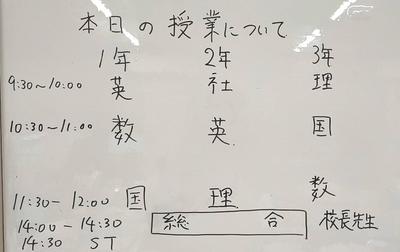 本日の授業について
1年 2年 3年
9:30~10:00 英 社 理
10:30~11:00 数 英 国
11:30- 12:00 国 理 数
14:00 - 14:30 総 合 校長先生
14:30 ST